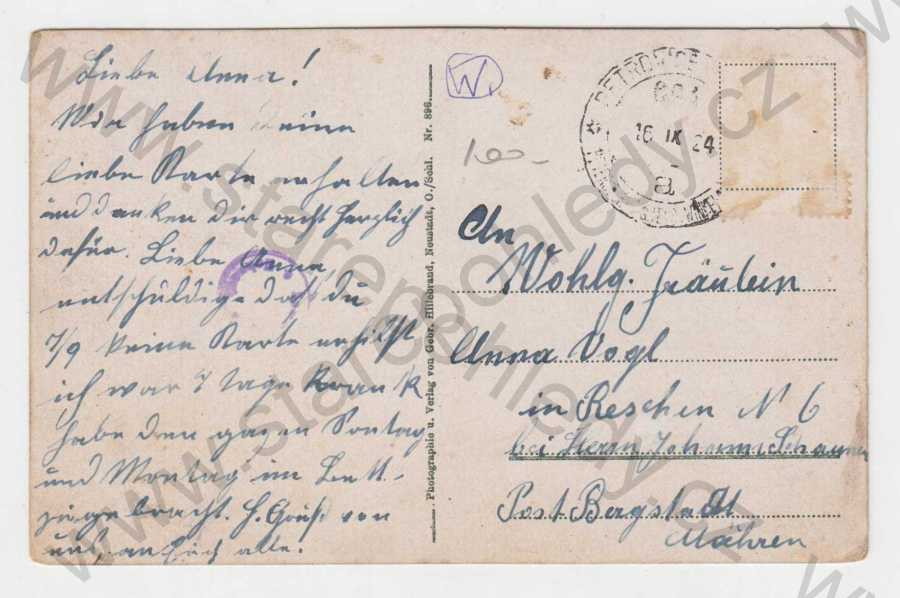 Liebe Anna!
Wir haben deine
liebe Karte erhalten
und danken dir recht herzlich
dafür. Liebe Anna,
entschuldige daß du
7/9 keine Karte erhilst
ich war 7 tage krank
habe den ganzen Sontag
und Montag im Bett
zugebracht. H. Grüß von
uns, an Euch alle.
Photographie u. Verlag von Gebr. Hillebrand, Neustadt, O./Schl. Nr. 896.
W.
100.-
16 IX 24
a
An
Wohlg. Fräulein
Anna Vogl
in Reschen N 6
bei Herrn Johann Schaumer
Post Bergstadt
Mähren
www.starepohledy.cz